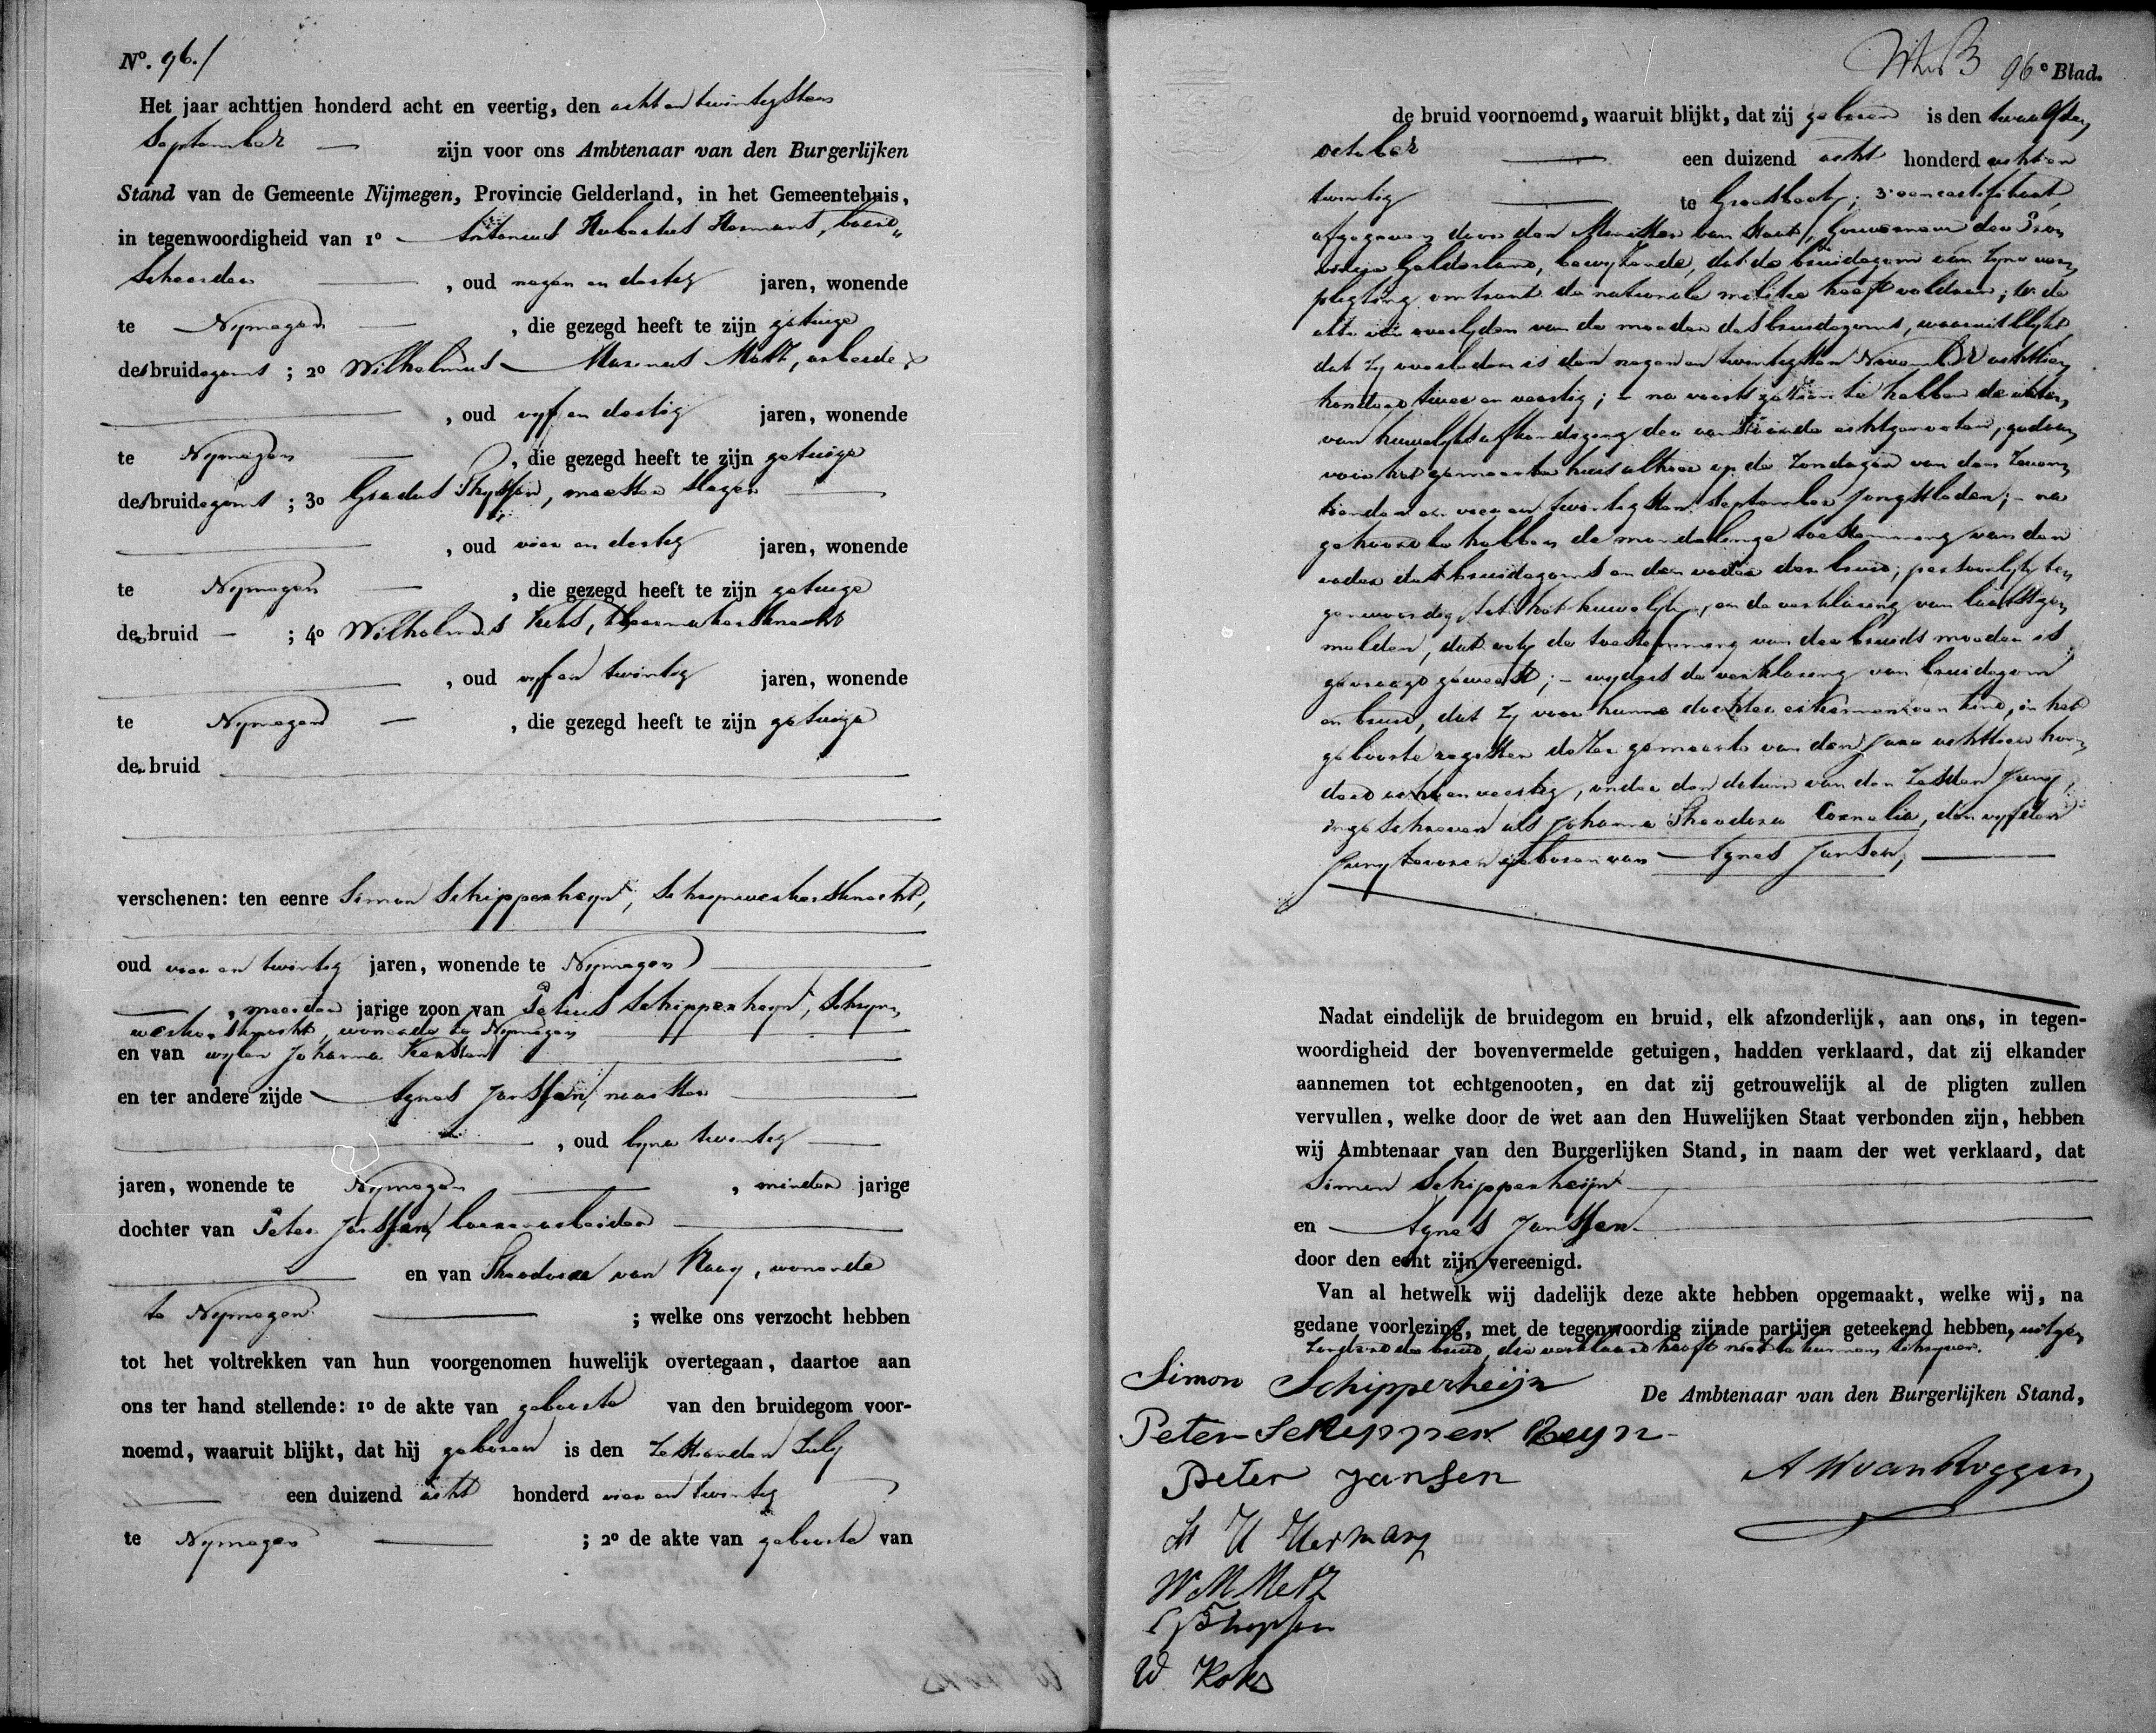 No. 96./
Het jaar achttien honderd acht en veertig, den acht en twintigsten
September zijn voor ons Ambtenaar van den Burgerlijken
Stand van de Gemeente Nijmegen, Provincie Gelderland, in het Gemeentehuis,
in tegenwoordigheid van 1o Antonius Hubertus Hermans,
, oud negen en dertig jaren, wonende
te Nijmegen , die gezegd heeft te zijn getuige
des bruidegoms ; 2o Wilhelmus Marinus Metz, arbeider
, oud vyf en dertig jaren, wonende
te Nijmegen , die gezegd heeft te zijn getuige
des bruidegoms ; 3o Gradus Thyssen, meester slager
, oud vier en dertig jaren, wonende
te Nijmegen , die gezegd heeft te zijn getuige
der bruid ; 4o Wilhelmus Koks,
, oud vyf en twintig jaren, wonende
te Nijmegen , die gezegd heeft te zijn getuige
der bruid
verschenen: ten eenre Simon Schipperheijn, schrynwerkersknecht,
oud vier en twintig jaren, wonende te Nijmegen
, meerder jarige zoon van Petrus Schipperheijn, schryn
werkersknecht, wonende te Nijmegen
en van wylen Johanna Kersten
en ter andere zijde Agnes Janssen, naaister
, oud byna twintig
jaren, wonende te Nijmegen , minder jarige
dochter van Peter Janssen,
en van Theodora van Raay, wonende
te Nijmegen ; welke ons verzocht hebben
tot het voltrekken van hun voorgenomen huwelijk overtegaan, daartoe aan
ons ter hand stellende: 1o de akte van geboorte van den bruidegom voor-
noemd, waaruit blijkt, dat hij geboren is den zestienden July
een duizend acht honderd vier en twintig
te Nymegen ; 2o de akte van geboorte van
96e Blad.
de bruid voornoemd, waaruit blijkt, dat zij geboren is den twaalfden
october een duizend acht honderd acht en
twintig te Groesbeek; 3o een certificaat,
afgegeven door den Minister van Staat, Gouverneur der Pro
vincie Gelderland, bewyzende, dat de bruidegom aan zyne ver
pligting omtrent de nationale militie heeft voldaan; 4o de
akte van overlyden van de moeder des bruidegoms, waaruit blykt,
dat zy overleden is den negen en twintigsten November achttien
honderd twee en veertig; - na voorts gezien te hebben de akten
van huwelyksafkondiging der aanstaande echtgenooten, gedaan
voor het gemeente huis alhier op de Zondagen van den zeven
tienden en vier en twintigsten September jongstleden; - na
gehoord te hebben de mondelinge toestemming van den
vader des bruidegoms en den vader der bruid, persoonlyk te
genwoordig tot het huwelyk, en de verklaring van laatstge
melden, dat ook de toestemming van der bruids moeder is
gevraagd geweest; - wyders de verklaring van bruidegom
en bruid, dat zy voor hunne dochter erkennen een kind, in het
geboorte register dezer gemeente van den jare achttien hon
derd acht en veertig, onder den datum van den zesden Juny,
ingeschreven als Johanna Theodora Cornelia, den vyfden
Juny tevoren geboren van Agnes Jansen,
Nadat eindelijk de bruidegom en bruid, elk afzonderlijk, aan ons, in tegen-
woordigheid der bovenvermelde getuigen, hadden verklaard, dat zij elkander
aannemen tot echtgenooten, en dat zij getrouwelijk al de pligten zullen
vervullen, welke door de wet aan den Huwelijken Staat verbonden zijn, hebben
wij Ambtenaar van den Burgerlijken Stand, in naam der wet verklaard, dat
Simon Schipperheijn
en Agnes Janssen
door den echt zijn vereenigd.
Van al hetwelk wij dadelijk deze akte hebben opgemaakt, welke wij, na
gedane voorlezing, met de tegenwoordig zijnde partijen geteekend hebben, uitge
zonderd de bruid, die verklaard heeft niet te kunnen schryven.
De Ambtenaar van den Burgerlijken Stand,
Simon Schipperheijn
Peter Schipper Heyn
Peter Jansen
A W van Roggen
A H Hermans
W M Metz
G Thyssen
W Koks